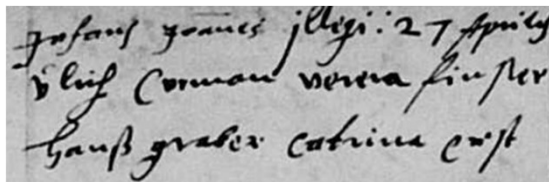 Infans Joannes illegi: 27 Aprilis
Vlich Curman verena finster
Hanß graber Catrina Erst